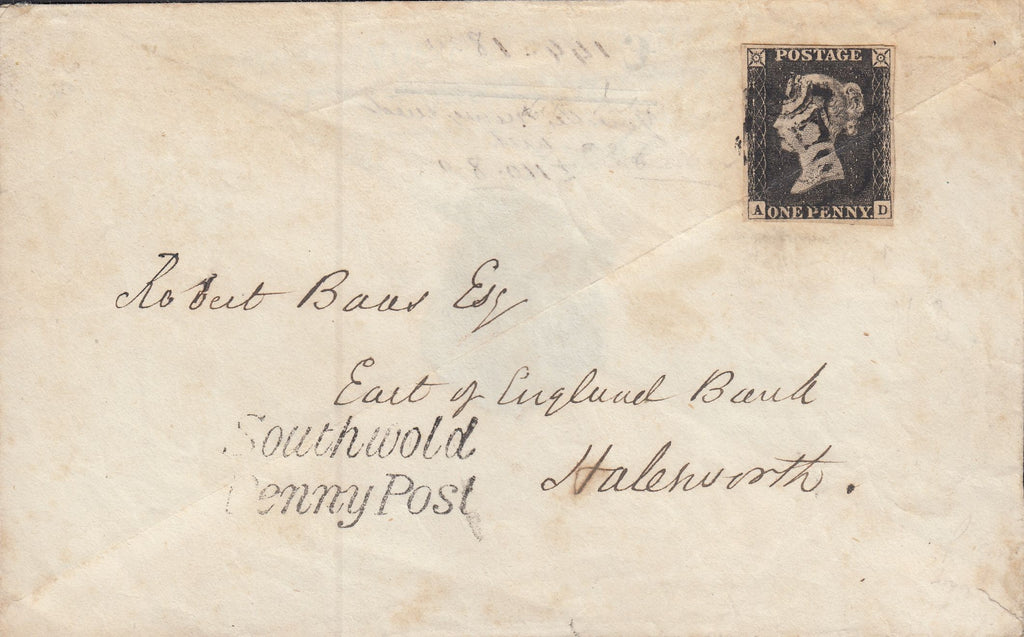 POSTAGE
A ONE PENNY. D
Robert Baas Esq
East of England Bank
Southwold
Penny Post
Halesworth.